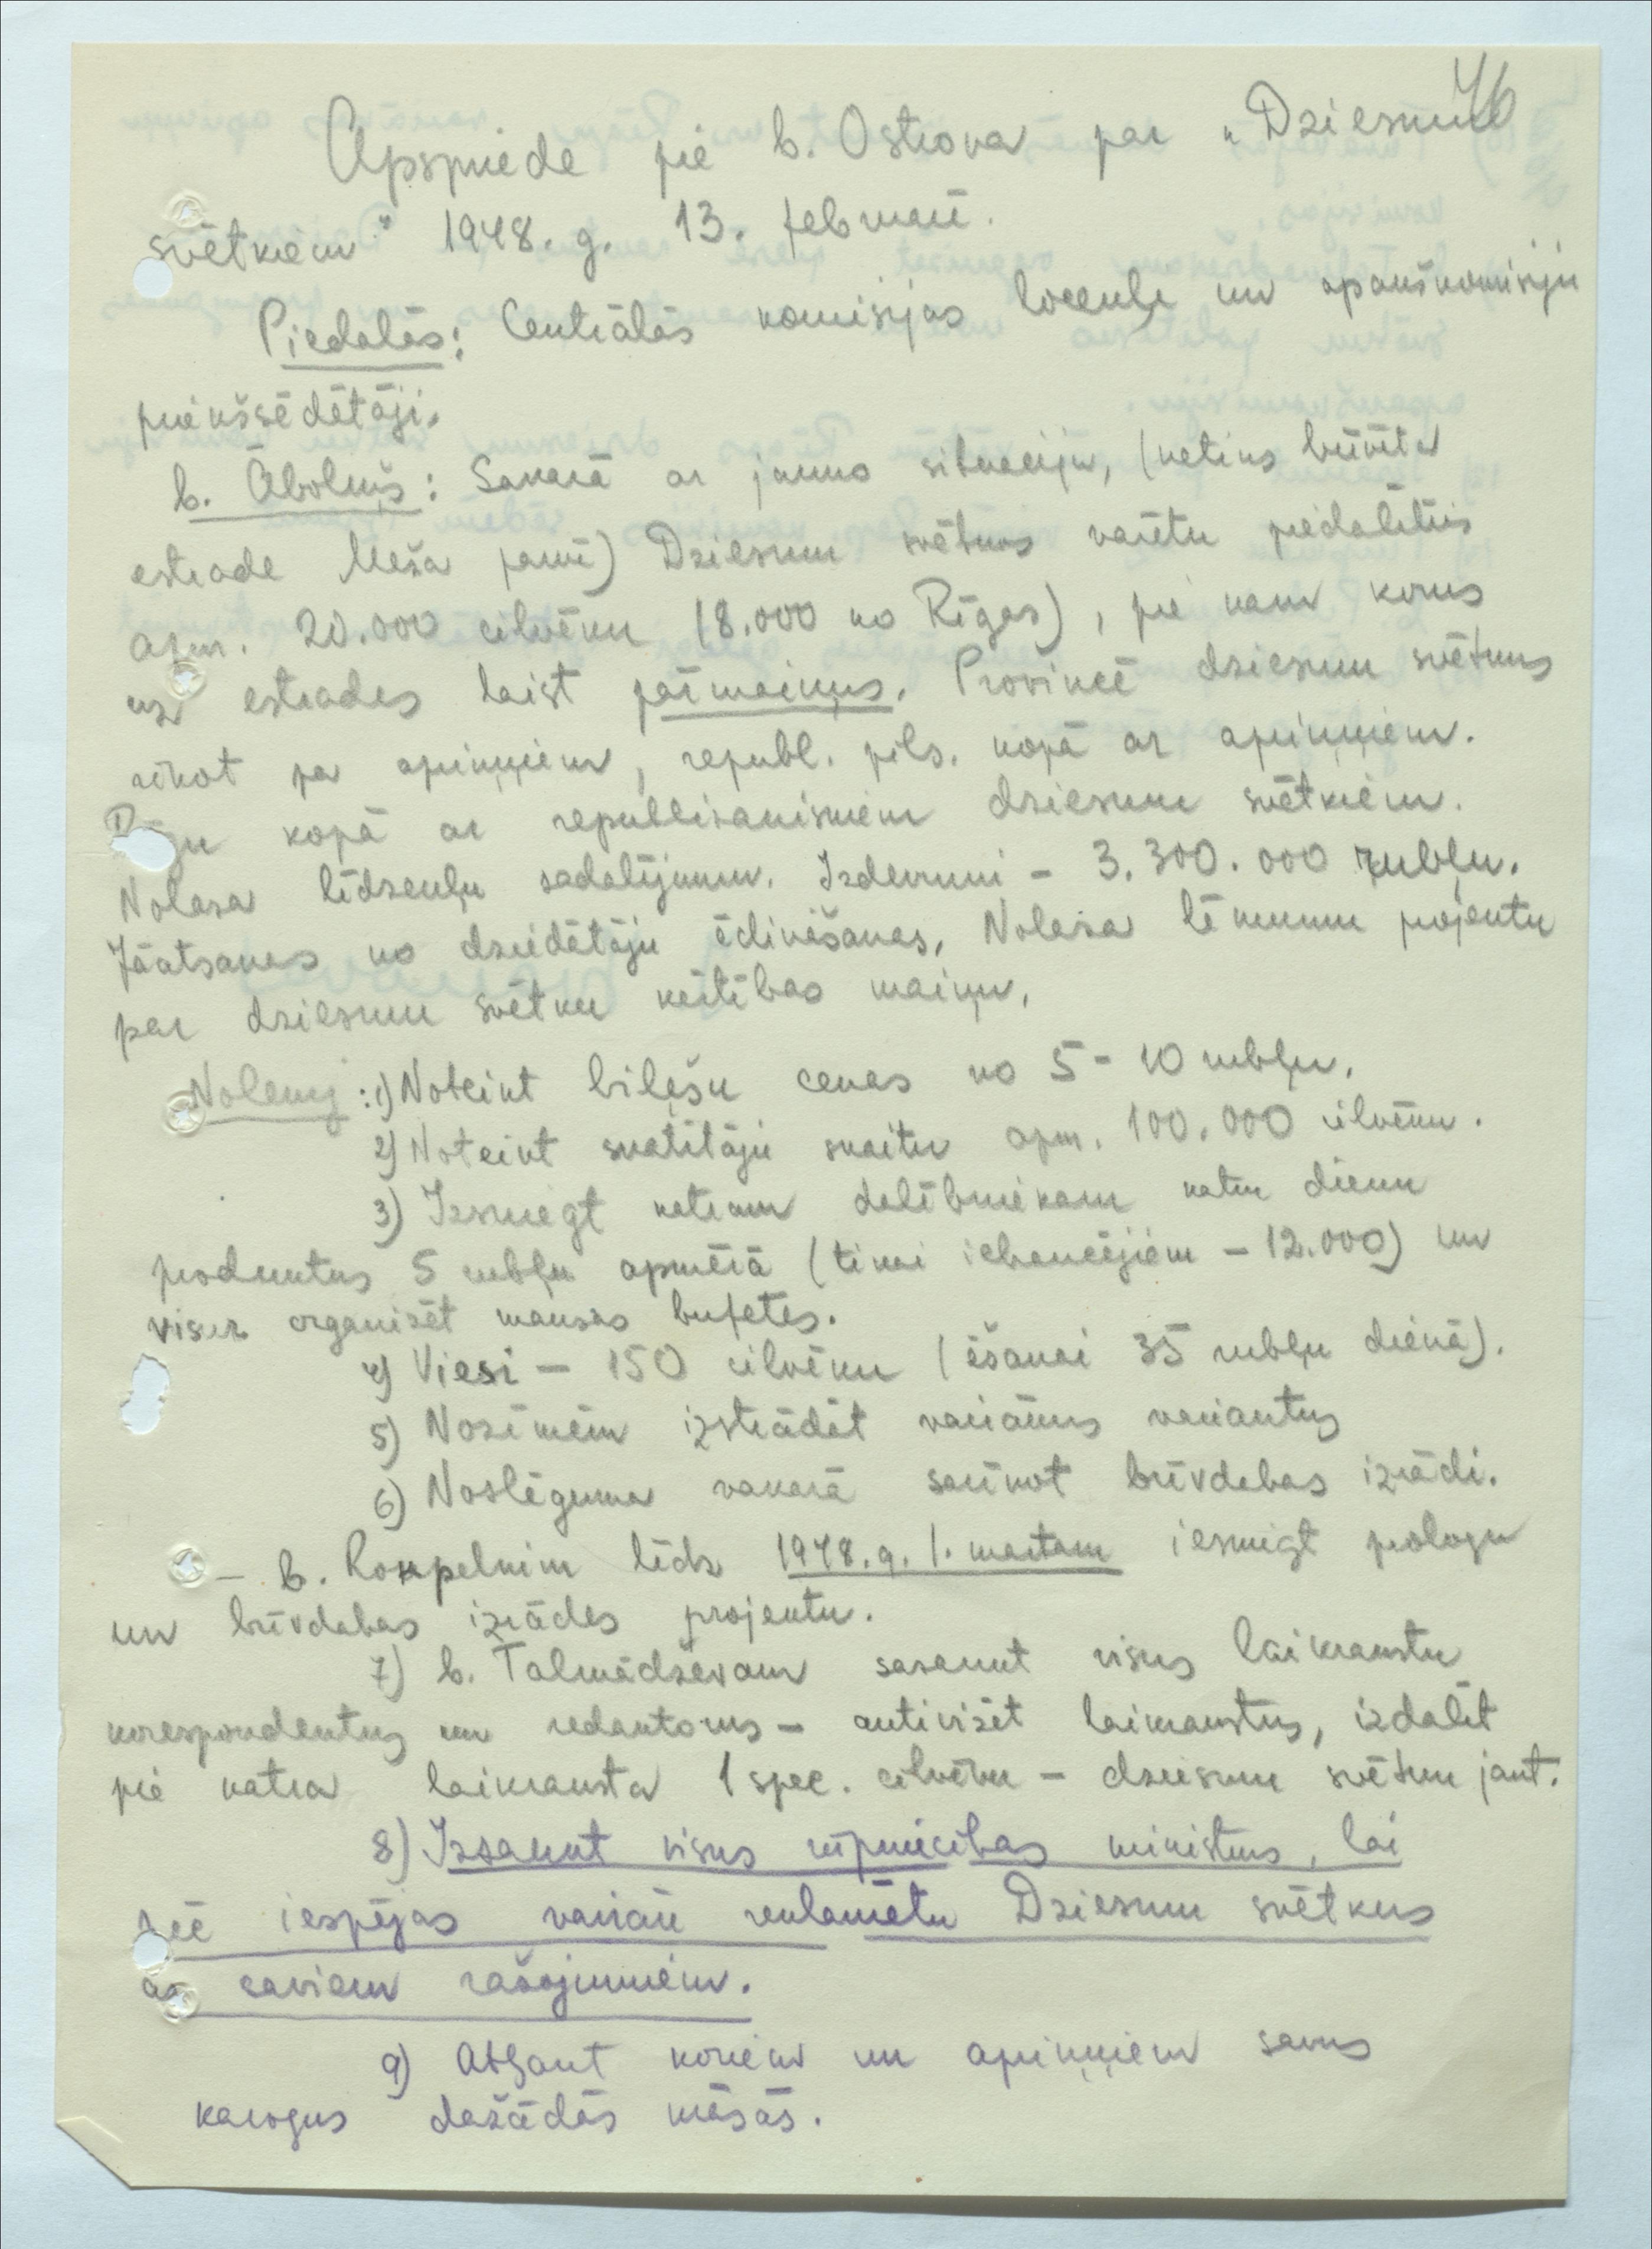 76
Apspriede pie b. Ostrova par „Dziesmu
svētkiem" 1948. g. 13. februarī.
Piedalās: Centrālās komisijas locekļi un apakškomisiju
priekšsēdētāji.
b. Āboliņš: Sakarā ar jauno situaciju, (netiks būvēta
estrade Meža parkā) Dziesmu svētkos varētu piedalīties
apm. 20.000 cilvēku (8.000 no Rīgas), pie kam korus
uz estrades laist pārmaiņus. Provincē dziesmu svētkus
rīkot pa apriņķiem, republ. pils. kopā ar apriņķiem.
Rīgu kopā ar republikaniskiem dziesmu svētkiem.
Nolasa līdzekļu sadalījumu. Izdevumi - 3.300.000 rubļu.
Jāatsakas no dziedātāju ēdināšanas. Nolasa lēmumu projektu
par dziesmu svētku kārtības maiņu.
Nolemj: 1) Noteikt biļešu cenas no 5 - 10 rubļu.
2) Noteikt skatītāju skaitu apm. 100.000 cilvēku.
3) Izsniegt katram dalībniekam katru dienu
produktus 5 rubļu apmērā (tikai iebraucējiem - 12.000) un
visur organizēt maksas bufetes.
4) Viesi - 150 cilvēku (ēšanai 35 rubļu dienā).
5) Nozīmēm izstrādāt vairākus variantus
6) Noslēguma vakarā sarīkot brīvdabas izrādi.
- b. Rokpelnim līdz 1948.g. 1. martam iesniegt prologu
un brīvdabas izrādes projektu.
7) b. Talmādževam sasaukt visus laikrakstu
korespondentus un redaktorus - aktivizēt laikrakstus, izdalīt
pie katra laikraksta 1 spec. cilvēku - dziesmu svētku jaut.
8) Izsaukt visus rūpniecības ministrus, lai
pēc iespējas vairāk reklamētu Dziesmu svētkus
ar saviem ražojumiem.
9) Atļaut koriem un apriņķiem savus
karogus dažādās krāsās.